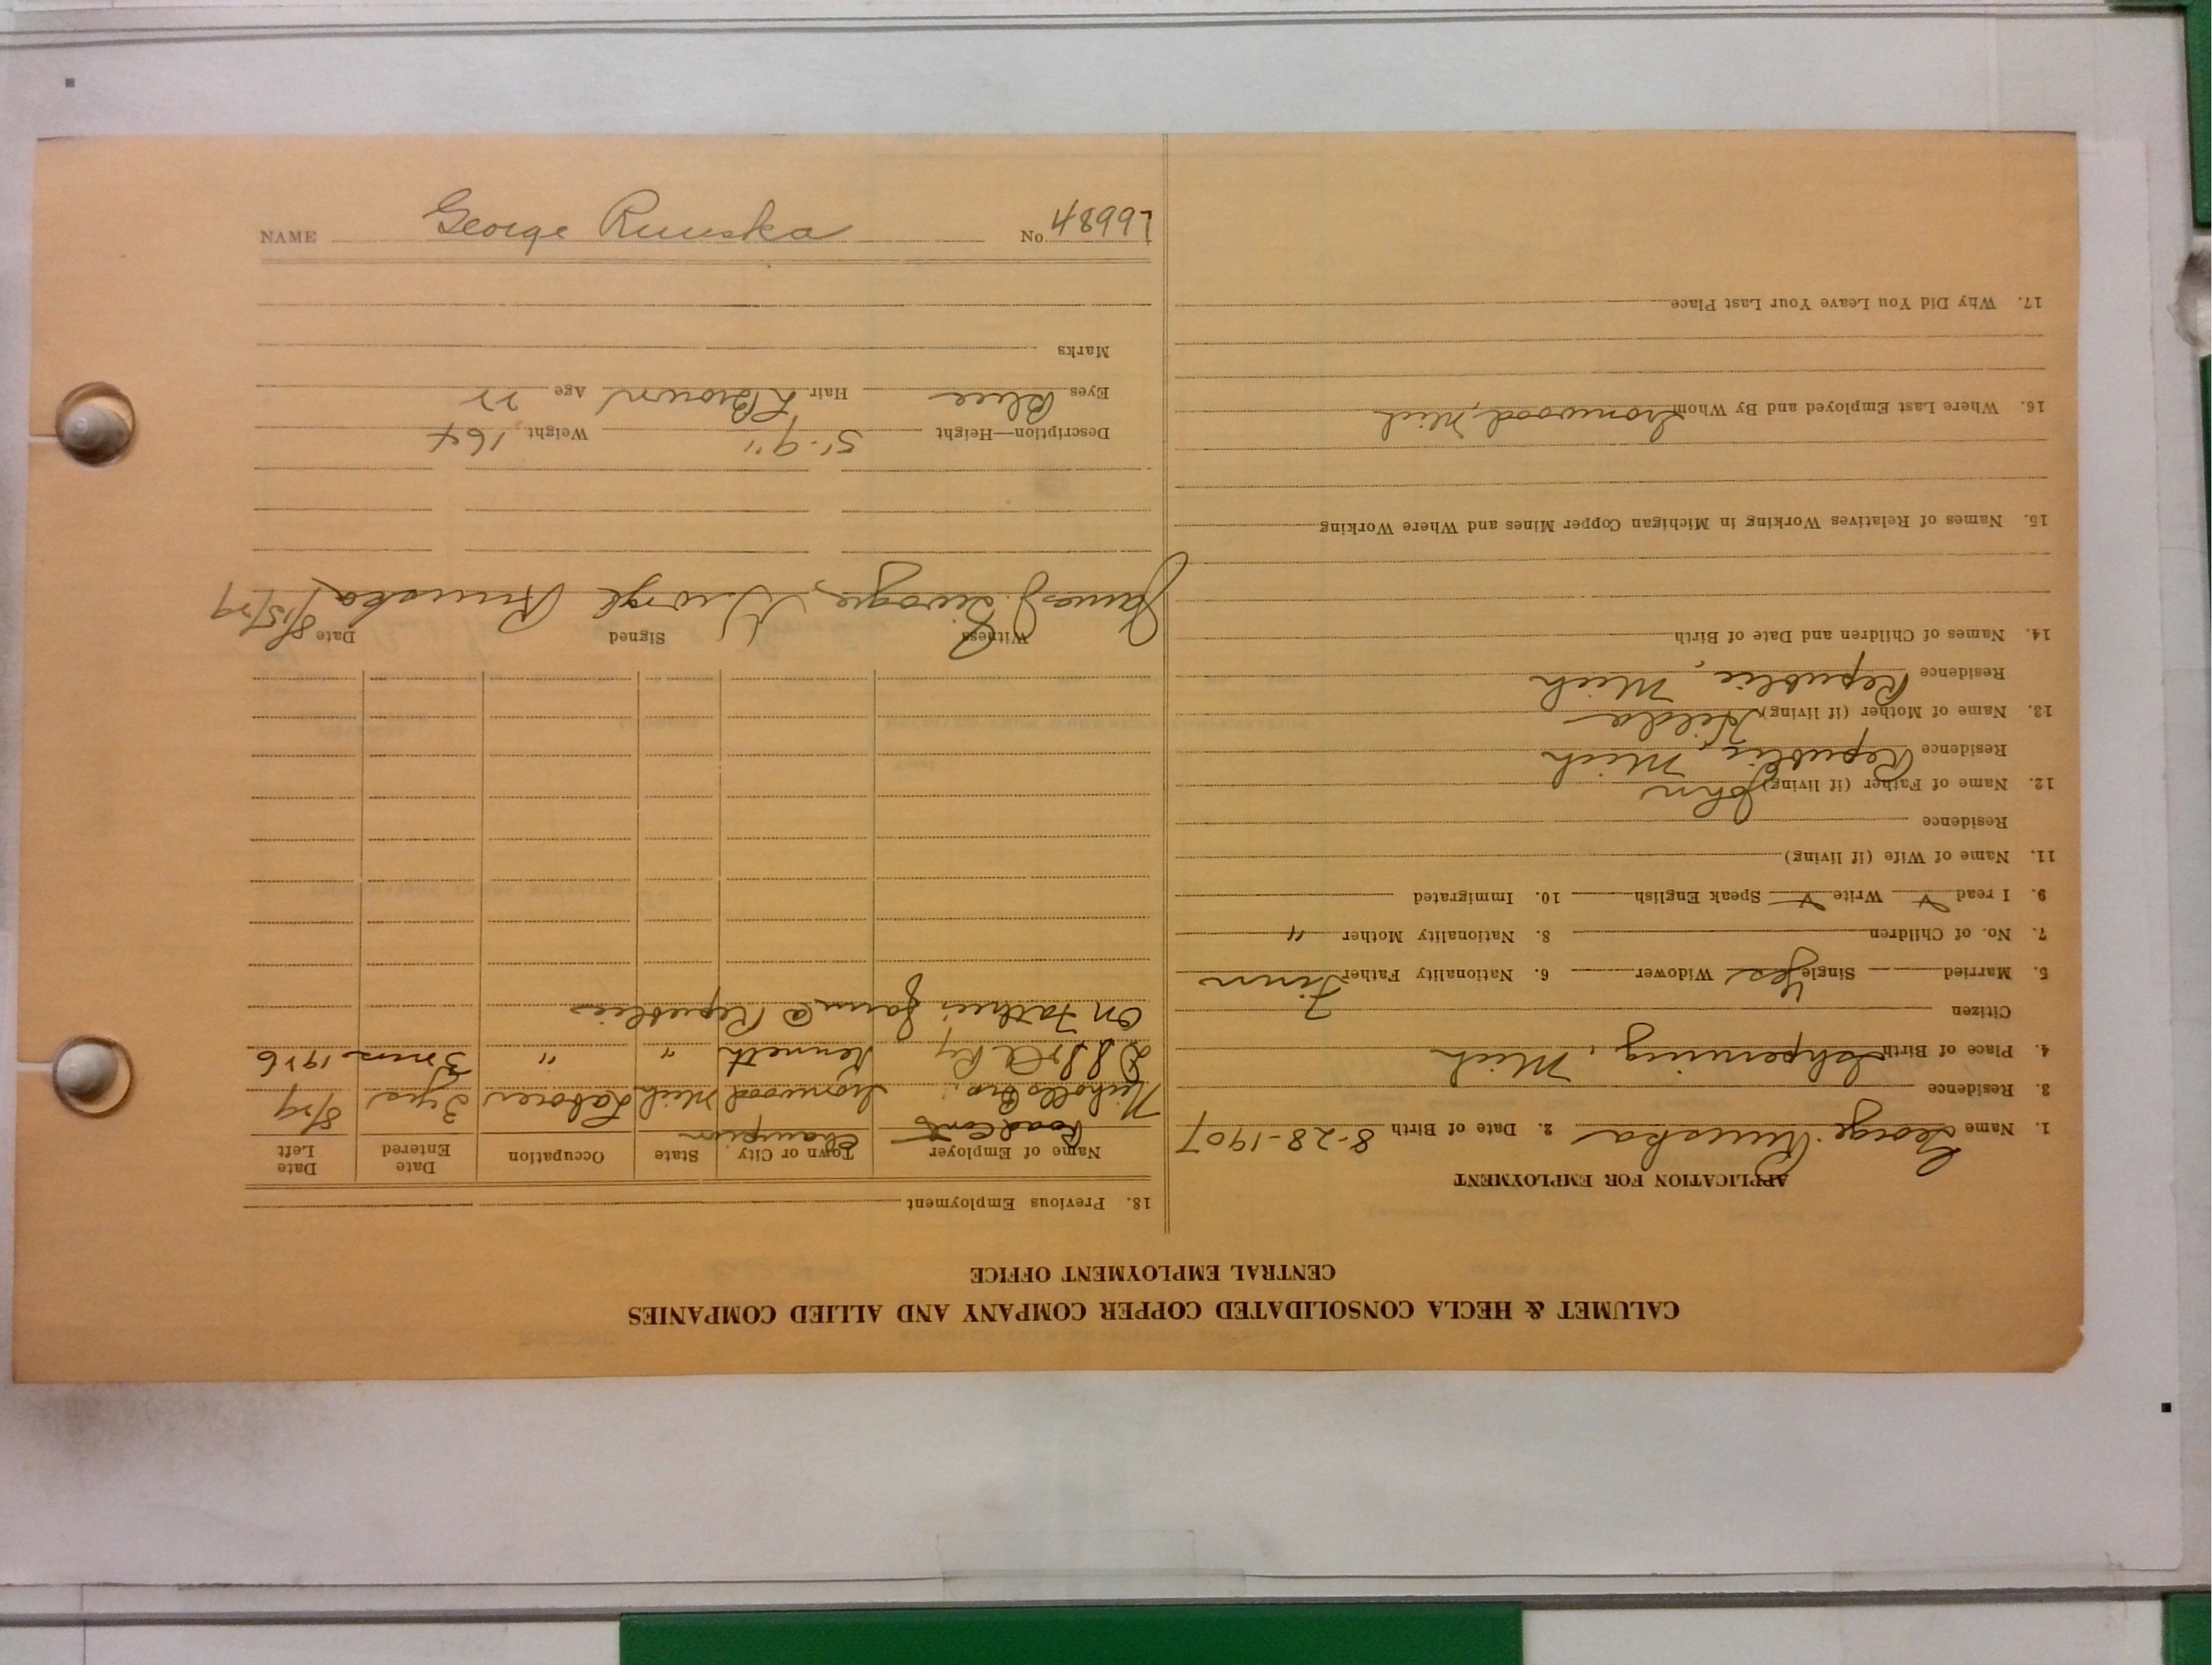 CALUMET & HECLA CONSOLIDATED COPPER COMPANY AND ALLIED COMPANIES
CENTRAL EMPLOYMENT OFFICE
APPLICATION FOR EMPLOYMENT
1. Name George Ruuska 2. Date of Birth 8-28-1907
3. Residence
4. Place of Birth Ishpeming, Mich
Citizen
5. Married Single Yes Widower 6. Nationality Father Finn
7. No. of Children 8. Nationality Mother "
9. I read Write Speak English 10. Immigrated
11. Name of Wife (if living)
Residence
12. Name of Father (if living) John
Residence Republic, Mich
13. Name of Mother (if living) Hilda
Residence Republic, Mich
14. Names of Children and Date of Birth
15. Names of Relatives Working in Michigan Copper Mines and Where Working
16. Where Last Employed and By Whom Ironwood, Mich
17. Why Did You Leave Your Last Place
18. Previous Employment
Name of Employer Town or City State Occupation Date Entered Date Left
Road Cont Champion
Nicholls Bro. Ironwood Mich Laborer 3 yrs 8/29
D.S.S. & A Ry Kenneth " " 3 mos 1926
On Father's farm @ Republic
Witness Signed Date 8/15/29
James J. George Ruuska
Description—Height 5'-9" Weight 164
Eyes Blue Hair L Brown Age 22
Marks
NAME George Ruuska No 48997